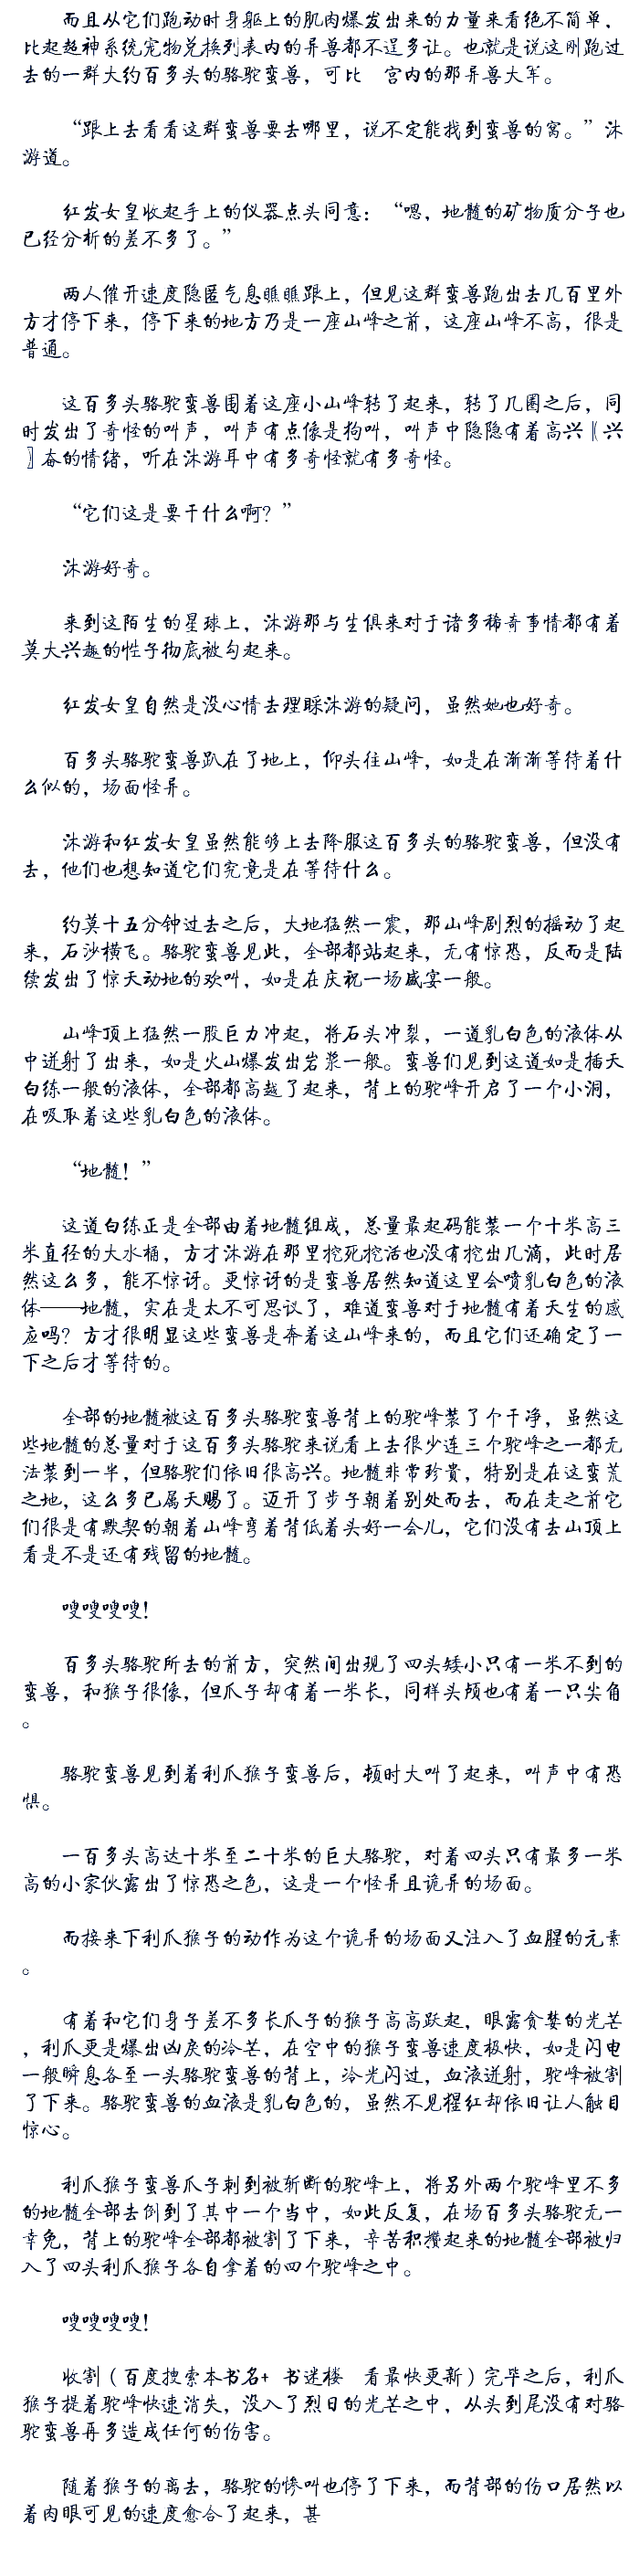 而且从它们跑动时身躯上的肌肉爆发出来的力量来看绝不简单，
比起超神系统宠物兑换列表内的异兽都不逞多让。也就是说这刚跑过
去的一群大约百多头的骆驼蛮兽，可比　宫内的那异兽大军。
“跟上去看看这群蛮兽要去哪里，说不定能找到蛮兽的窝。”沐
游道。
红发女皇收起手上的仪器点头同意：“嗯，地髓的矿物质分子也
已经分析的差不多了。”
两人催开速度隐匿气息瞧瞧跟上，但见这群蛮兽跑出去几百里外
方才停下来，停下来的地方乃是一座山峰之前，这座山峰不高，很是
普通。
这百多头骆驼蛮兽围着这座小山峰转了起来，转了几圈之后，同
时发出了奇怪的叫声，叫声有点像是狗叫，叫声中隐隐有着高兴〖兴
〗奋的情绪，听在沐游耳中有多奇怪就有多奇怪。
“它们这是要干什么啊？”
沐游好奇。
来到这陌生的星球上，沐游那与生俱来对于诸多稀奇事情都有着
莫大兴趣的性子彻底被勾起来。
红发女皇自然是没心情去理睬沐游的疑问，虽然她也好奇。
百多头骆驼蛮兽趴在了地上，仰头往山峰，如是在渐渐等待着什
么似的，场面怪异。
沐游和红发女皇虽然能够上去降服这百多头的骆驼蛮兽，但没有
去，他们也想知道它们究竟是在等待什么。
约莫十五分钟过去之后，大地猛然一震，那山峰剧烈的摇动了起
来，石沙横飞。骆驼蛮兽见此，全部都站起来，无有惊恐，反而是陆
续发出了惊天动地的欢叫，如是在庆祝一场盛宴一般。
山峰顶上猛然一股巨力冲起，将石头冲裂，一道乳白色的液体从
中迸射了出来，如是火山爆发出岩浆一般。蛮兽们见到这道如是插天
白练一般的液体，全部都高越了起来，背上的驼峰开启了一个小洞，
在吸取着这些乳白色的液体。
“地髓！”
这道白练正是全部由着地髓组成，总量最起码能装一个十米高三
米直径的大水桶，方才沐游在那里挖死挖活也没有挖出几滴，此时居
然这么多，能不惊讶。更惊讶的是蛮兽居然知道这里会喷乳白色的液
体——地髓，实在是太不可思议了，难道蛮兽对于地髓有着天生的感
应吗？方才很明显这些蛮兽是奔着这山峰来的，而且它们还确定了一
下之后才等待的。
全部的地髓被这百多头骆驼蛮兽背上的驼峰装了个干净，虽然这
些地髓的总量对于这百多头骆驼来说看上去很少连三个驼峰之一都无
法装到一半，但骆驼们依旧很高兴。地髓非常珍贵，特别是在这蛮荒
之地，这么多已属天赐了。迈开了步子朝着别处而去，而在走之前它
们很是有默契的朝着山峰弯着背低着头好一会儿，它们没有去山顶上
看是不是还有残留的地髓。
嗖嗖嗖嗖！
百多头骆驼所去的前方，突然间出现了四头矮小只有一米不到的
蛮兽，和猴子很像，但爪子却有着一米长，同样头颅也有着一只尖角
。
骆驼蛮兽见到着利爪猴子蛮兽后，顿时大叫了起来，叫声中有恐
惧。
一百多头高达十米至二十米的巨大骆驼，对着四头只有最多一米
高的小家伙露出了惊恐之色，这是一个怪异且诡异的场面。
而接来下利爪猴子的动作为这个诡异的场面又注入了血腥的元素
。
有着和它们身子差不多长爪子的猴子高高跃起，眼露贪婪的光芒
，利爪更是爆出凶戾的冷芒，在空中的猴子蛮兽速度极快，如是闪电
一般瞬息各至一头骆驼蛮兽的背上，冷光闪过，血液迸射，驼峰被割
了下来。骆驼蛮兽的血液是乳白色的，虽然不见猩红却依旧让人触目
惊心。
利爪猴子蛮兽爪子刺到被斩断的驼峰上，将另外两个驼峰里不多
的地髓全部去倒到了其中一个当中，如此反复，在场百多头骆驼无一
幸免，背上的驼峰全部都被割了下来，辛苦积攒起来的地髓全部被归
入了四头利爪猴子各自拿着的四个驼峰之中。
嗖嗖嗖嗖！
收割（百度搜索本书名+　书迷楼　看最快更新）完毕之后，利爪
猴子提着驼峰快速消失，没入了烈日的光芒之中，从头到尾没有对骆
驼蛮兽再多造成任何的伤害。
随着猴子的离去，骆驼的惨叫也停了下来，而背部的伤口居然以
着肉眼可见的速度愈合了起来，甚